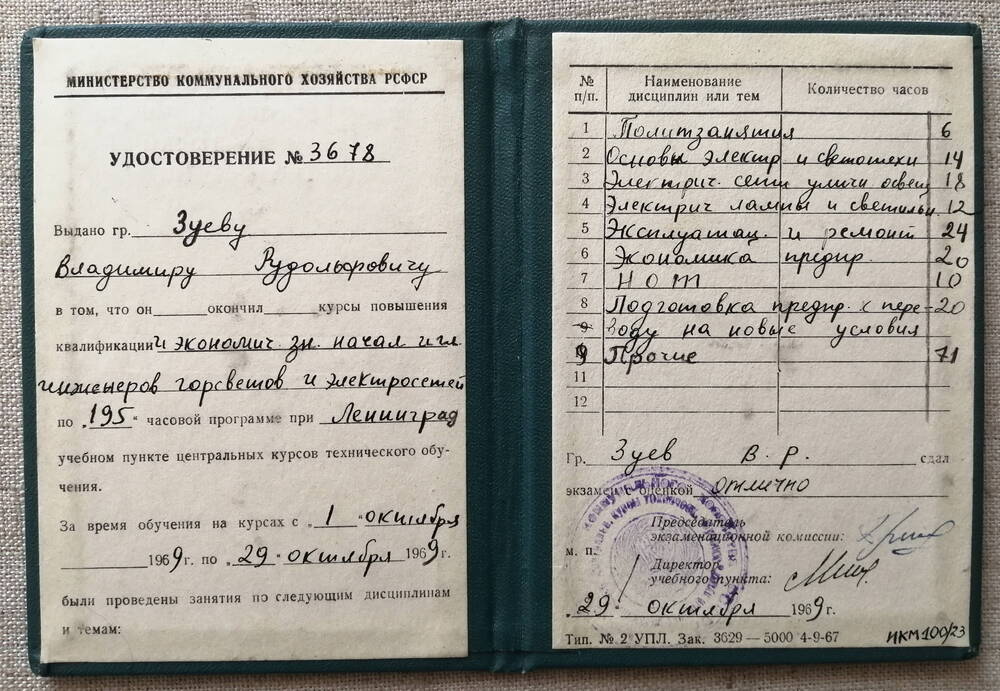 МИНИСТЕРСТВО КОММУНАЛЬНОГО ХОЗЯЙСТВА РСФСР
УДОСТОВЕРЕНИЕ № 3678
Выдано гр. Зуеву
Владимиру Рудольфовичу
в том, что он окончил курсы повышения
квалификации и экономич. зн. начал и гл.
инженеров горсветов и электросетей
по „195“ часовой программе при Ленинград
учебном пункте центральных курсов технического обу-
чения.
За время обучения на курсах с „1“ октября
1969 г. по „29“ октября 1969 г.
были проведены занятия по следующим дисциплинам
и темам:
№ п/п. Наименование дисциплин или тем Количество часов
1 Политзанятия 6
2 Основы электр и светотехн 14
3 Электрич. сети уличн освещ 18
4 Электрич лампы и светильн. 12
5 Эксплуатац. и ремонт 24
6 Экономика предпр. 20
7 НОТ 10
8 Подготовка предпр. к пере- 20
9 ходу на новые условия
9 Прочие 71
11
12
Гр. Зуев В. Р. сдал
экзамен с оценкой отлично
Председатель
экзаменационной комиссии:
м. п.
Директор
учебного пункта:
„29“ октября 1969 г.
Тип. № 2 УПЛ. Зак. 3629—5000 4-9-67
ИКМ 100/23